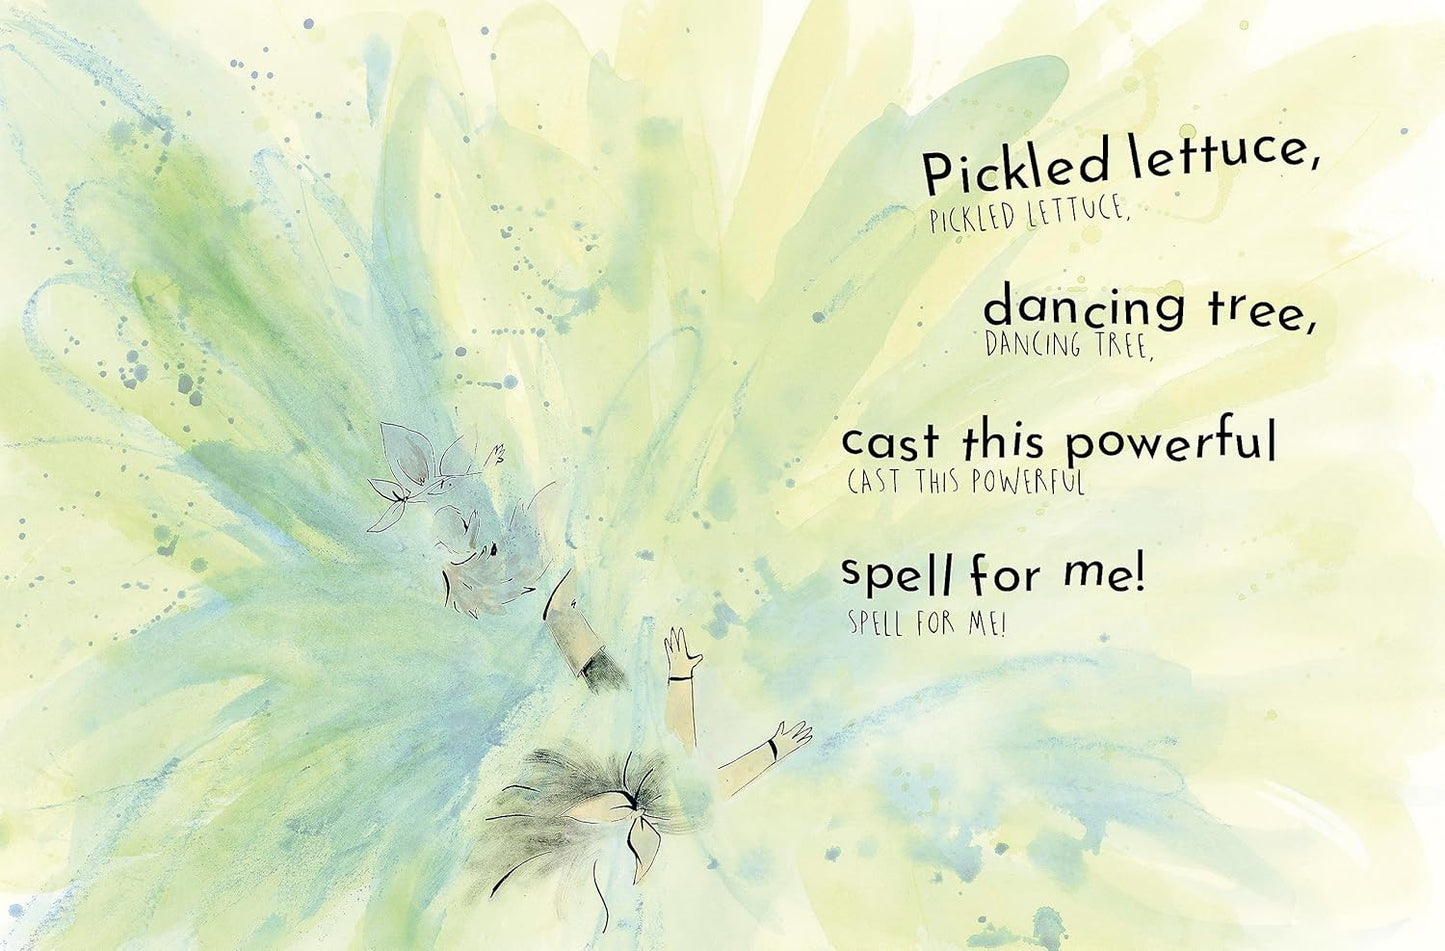 Pickled lettuce,
PICKLED LETTUCE,
dancing tree,
DANCING TREE,
cast this powerful
CAST THIS POWERFUL
spell for me!
SPELL FOR ME!